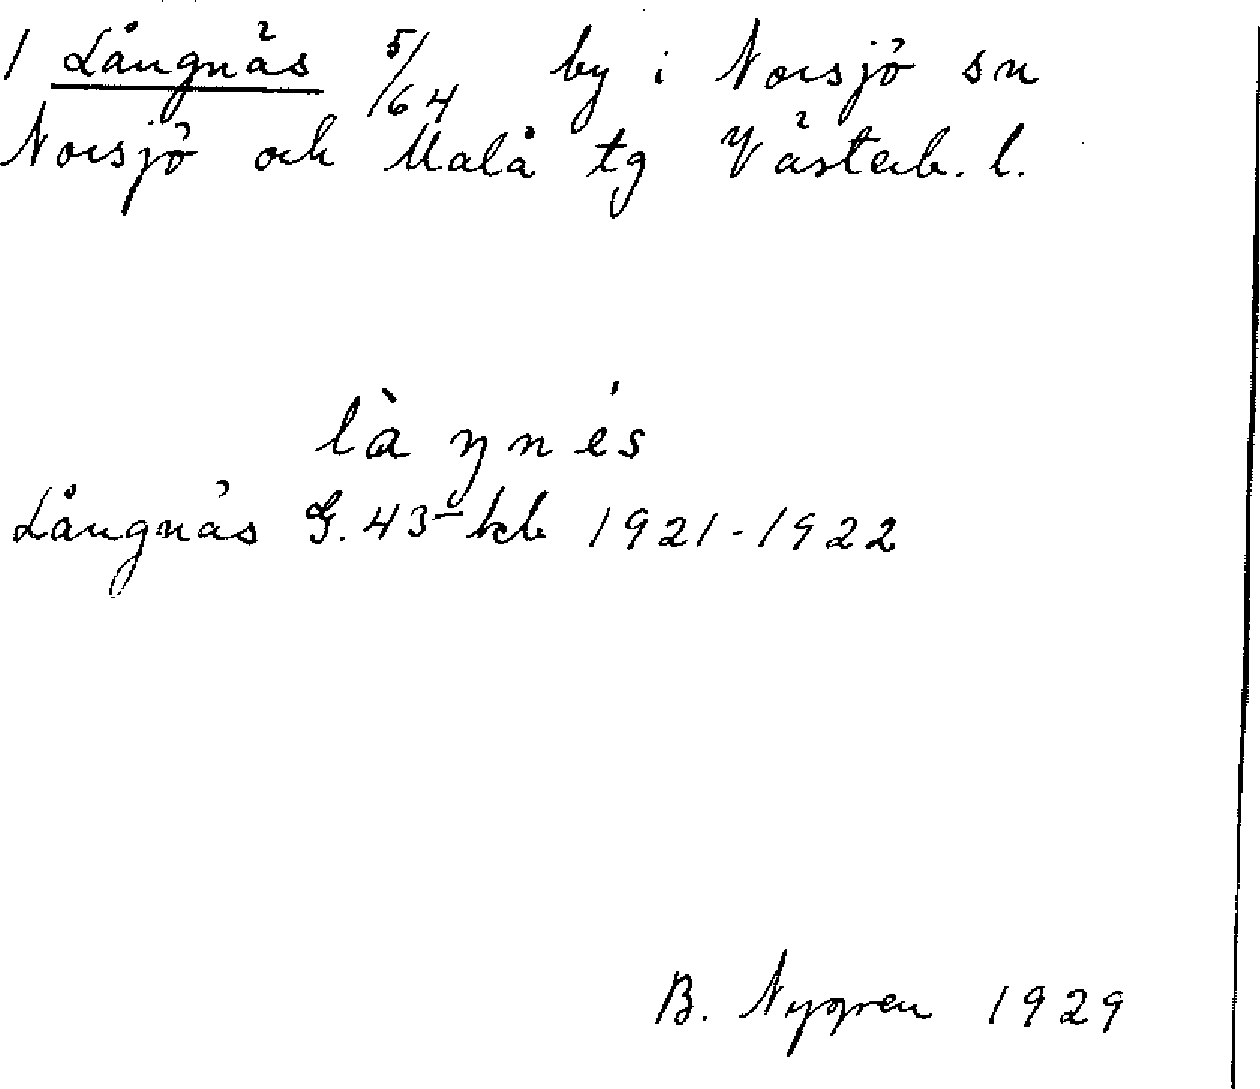 1 Långnäs 5/64 by i Norsjö sn
Norsjö och Malå tg Västerb. l.
là ŋnés
Långnäs G. 43 – kb 1921-1922
B. Nygren 1929